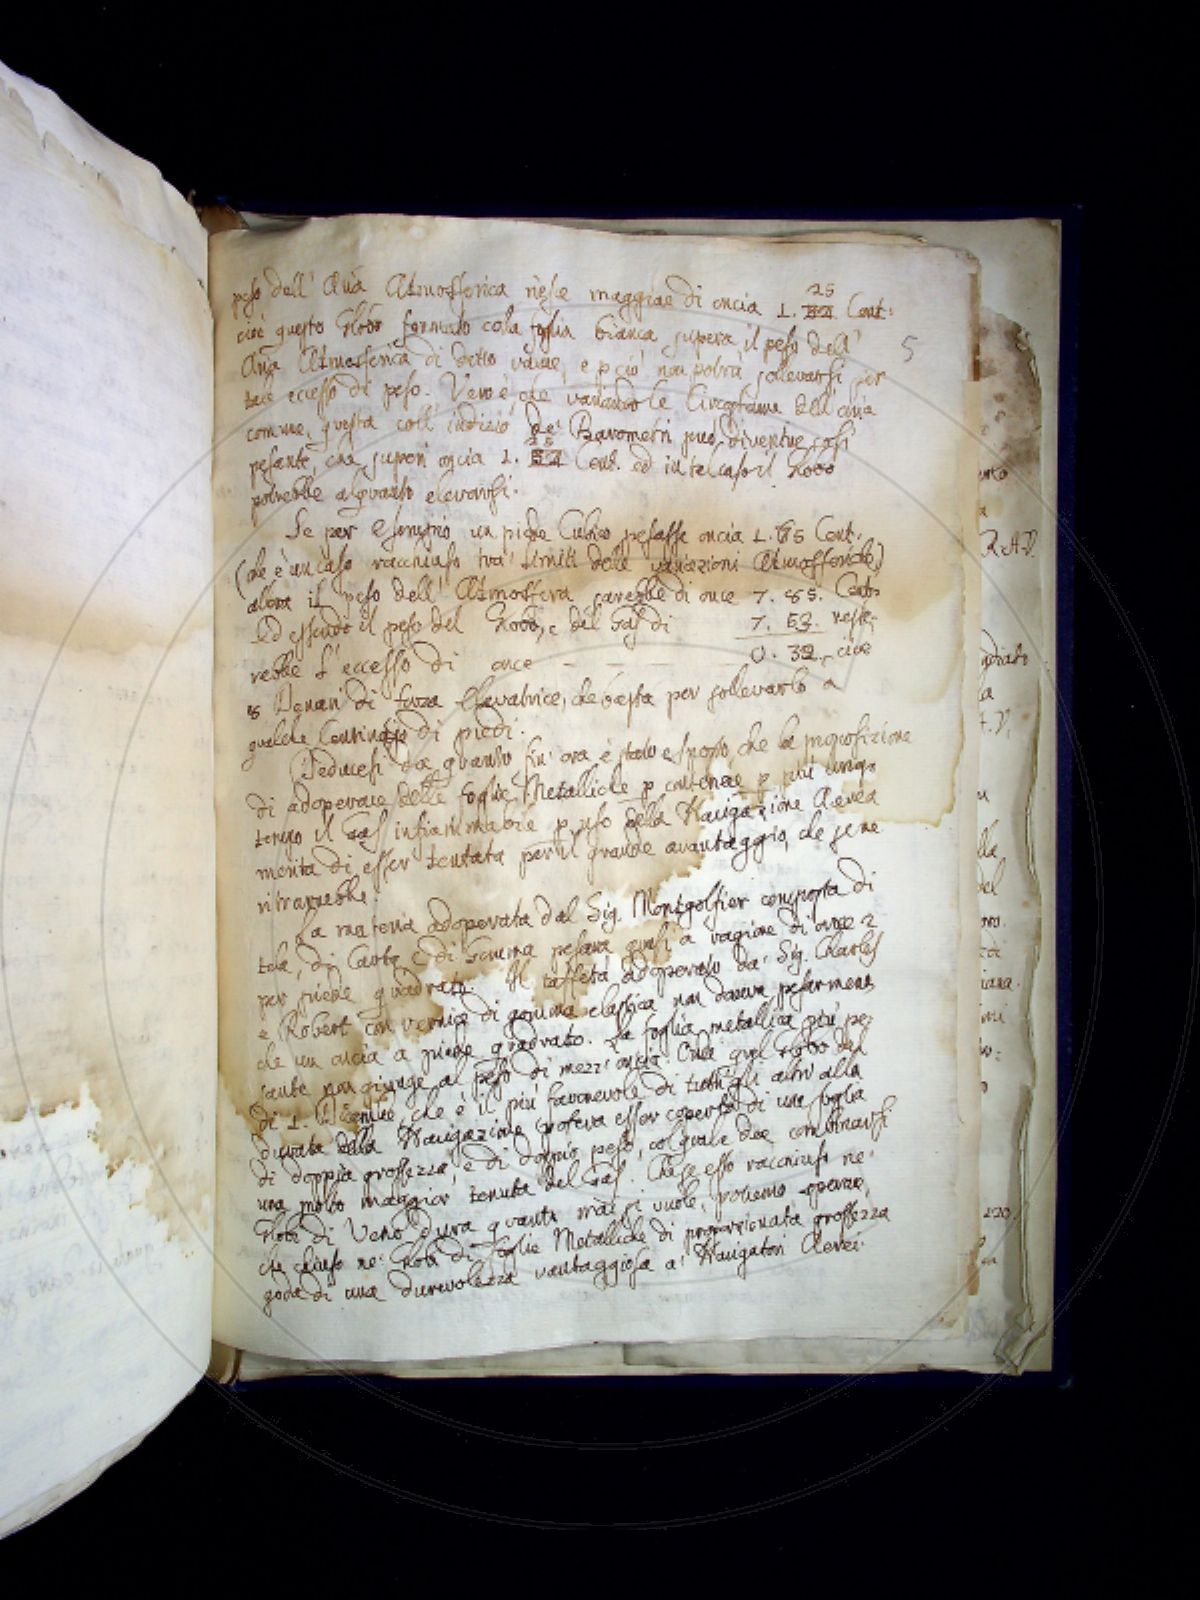 peso dell' Aria Atmosferica riesce maggiore di oncia 1. 25 Cent:
cioè questo Globo formato cola foglia bianca supera il peso dell'
5
Aria Atmosferica di detto volume, e p ciò non potrà sollevarsi per
tale eccesso di peso. Vero è, che variando le Circostanze dell' aria
comune, questa coll' indizio de' Barometri può divenire così
pesante, che superi oncia 1. 25 Cent. ed in tal caso il Globo
potrebbe alquanto elevarsi.
Se per Esempio un piede Cubico pesasse oncia 1. 85 Cent.
(che è un caso racchiuso tra' limiti delle variazioni Atmosferiche)
allora il peso dell' Atmosfera sarebbe di once 7. 85. Cent.
Ed essendo il peso del Globo, e del Gas di 7. 53. reste-
rebbe l'eccesso di once - - - 0. 32, cioè
8 Denari di forza Elevatrice, che basta per sollevarlo a
qualche Centinajo di piedi.
Deducesi da quanto fin' ora è stato esposto, che la proposizione
di adoperare delle foglie Metalliche p contenere p più lungo
tempo il Gas infiammabile p uso della Navigazione Aerea
merita di esser tentata per il grande avantaggio, che se ne
ritrarrebbe.
La materia adoperata dal Sig. Montgolfier composta di
tela, di Carta, e di Gomma pesava quasi a ragione di once 2
per piede quadrato. Il taffetà adoperato da' Sig. Charles
e Robert con vernice di gomma elastica non doveva pesar meno
che un oncia a piede quadrato. La foglia metallica più pe-
sante non giunge al peso di mezz' oncia. Onde quel Globo del
di 1. che è il più favorevole di tutti gli altri alla
durata della Navigazione poteva esser coperto di una foglia
di doppia grossezza, e di doppio peso, col quale dee combinarsi
una molto maggior tenuta del Gas. Che se esso racchiuso ne'
Globi di Vetro dura quanto mai si vuole, potiamo sperare,
che chiuso ne' Globi di Foglie Metalliche di proporzionata grossezza
goda di una durevolezza vantaggiosa a' Navigatori Aerei.